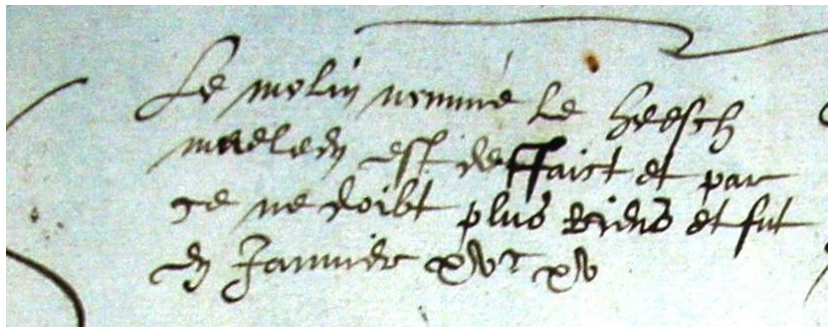 Le molin nommé le heesch
maeleny est deffaict et par
ce ne doibt plus Riens et fut
en Januier xvc xv